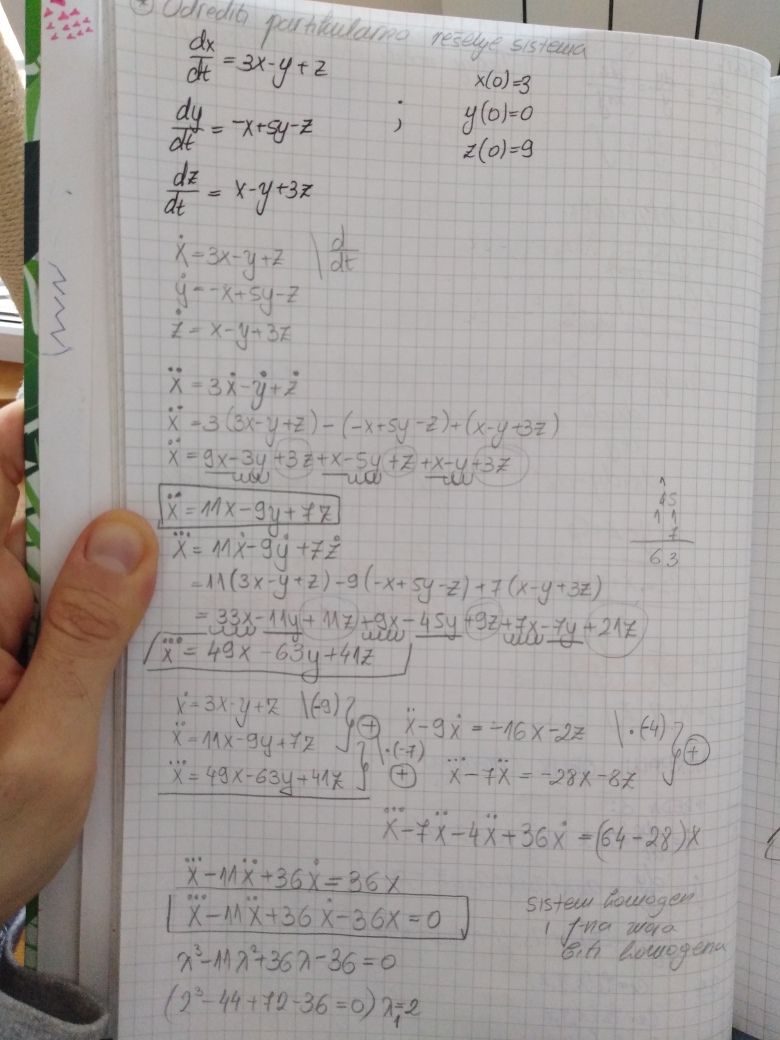 * Odrediti partikularno rešenje sistema
dx/dt = 3x-y+z
x(0)=3
dy/dt = -x+5y-z ;
y(0)=0
z(0)=9
dz/dt = x-y+3z
ẋ=3x-y+z \ d/dt
ẏ=-x+5y-z
ż= x-y+3z
ẍ = 3ẋ-ẏ+ż
ẍ =3(3x-y+z)-(-x+5y-z)+(x-y+3z)
ẍ = 9x-3y+3z+x-5y+z+x-y+3z
ẍ = 11x-9y+7z
1
45
11
7
63
x⃛ = 11ẋ-9ẏ+7ż
=11(3x-y+z)-9(-x+5y-z)+7(x-y+3z)
= 33x-11y+11z+9x-45y+9z+7x-7y+21z
x⃛ = 49x-63y+41z
ẋ=3x-y+z \(-9) +
ẍ = 11x-9y+7z \·(-7)
x⃛ =49x-63y+41z +
ẍ-9ẋ = -16x-2z \·(-4) +
x⃛-7ẍ = -28x-8z
x⃛-7ẍ-4ẍ+36ẋ =(64-28)x
x⃛-11ẍ+36ẋ=36x
x⃛-11ẍ+36ẋ-36x=0
sistem homogen
i j-na mora
biti homogena
λ³-11λ²+36λ-36=0
(2³-44+72-36=0) λ₁=2